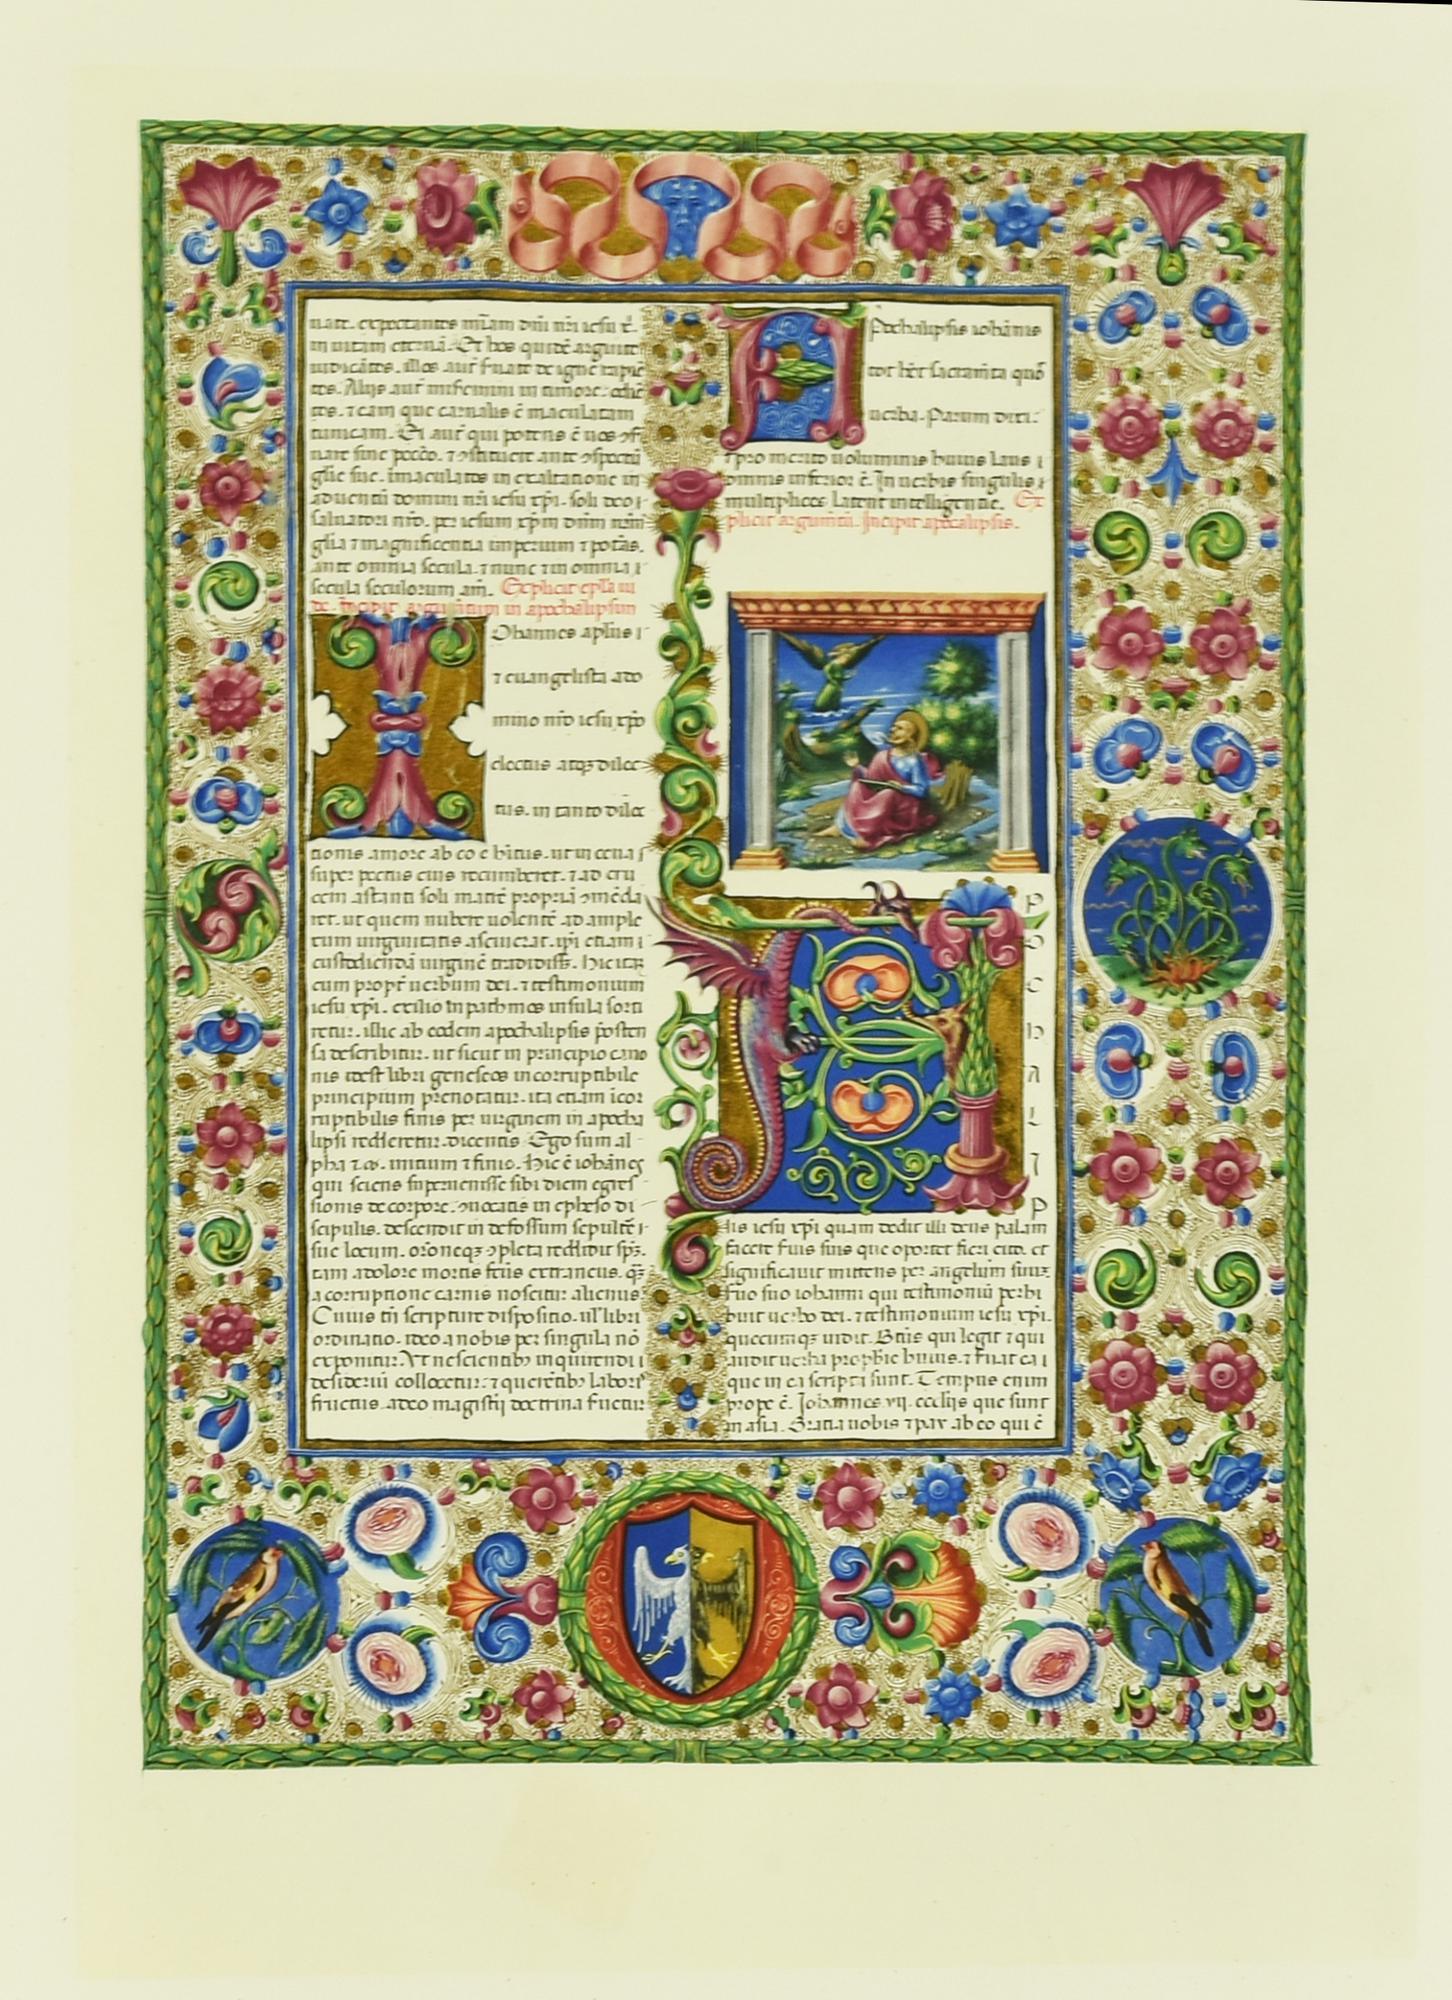 nate. expectantes mīam dn̄i nr̄i iesu x̄.
in uitam eternā. Et hos quidē arguite
iudicatos. illos aut̄ saluate de igne rapiē
tes. Alijs aut̄ miseremini in timore: odiē
tes. ⁊ eam que carnalis ē maculatam
tunicam. Ei aut̄ qui potens ē uos ↄser
uare sine pecc̄o. ⁊ ↄstituere ante ↄspectū
glīe sue. imaculatos in exaltatione in
aduentū domini nr̄i iesu xp̄i. soli deo ⁊
saluatori nr̄o. per iesum xp̄m dnm nr̄m
glīa ⁊ magnificentia imperium ⁊ potās.
ante omnia secula. ⁊ nunc ⁊ in omnia
secula seculorum am̄. Explicit ep̄la iu
de. incipit argumentum in apochalipsim
IOhannes ap̄lus
⁊ euangelista a do
mino nr̄o iesu xp̄o
electus atq̄ꝫ dilec
tus. in tanto dilec
tionis amore ab eo ē hītus. ut in cena
super pectus eius recumberet. ⁊ ad cru
cem astanti soli matrē propriā ↄmēda
ret. ut quem nubere uolentē ad ample
xum uirginitatis asciuerat. ip̄i etiam
custodiendā uirginē tradidisset. Hic itaꝗꝫ
cum propt̄ uerbum dei. ⁊ testimonium
iesu xp̄i. exilio in pathmos insula sorti
retur. illic ab eodem apochalipsis p̄osten
sa describitur. ut sicut in principio cano
nis idest libri geneseos incorruptibile
principium prenotatur. ita etiam icor
ruptibilis finis per uirginem in apocha
lipsi redderetur. dicentis Ego sum al
pha ⁊ ω. initium ⁊ finis. Hic ē iohānes
qui sciens superuenisse sibi diem egres
sionis de corpore. ↄuocatis in epheso di
scipulis. descendit in defossum sepultē
sue locum. or̄oneqꝫ ↄpleta reddidit sp̄m.
tam a dolore mortis factus extraneus. q̄ꝫ
a corruptione carnis noscitur alienus
Cuius tn̄ scripture dispositio. uel libri
ordinatio. ideo a nobis per singula nō
exponitur. Vt nescientibꝫ inquirendi
desideriū collocetur. ⁊ querētibꝫ laboris
fructus. a deo magisterij doctrina seruetur
APochalipsis iohānis
tot hēt sacram̄ta quod
uerba. Parum dixi.
⁊ pro merito uoluminis huius laus
omnis inferior ē. In uerbis singulis
multiplices latent intelligentie. Ex
plicit argumtū. Incipit apocalipsis.
A
P
O
C
H
A
L
I
P
sis iesu xp̄i quam dedit illi deus palam
facere seruis suis que oportet fieri cito. et
significauit mittens per angelum suum
seruo suo iohanni qui testimoniū perhi
buit uerbo dei. ⁊ testimonium iesu xp̄i.
quecumqꝫ uidit. Btūs qui legit ⁊ qui
audit uerba prophīe huius. ⁊ seruat ea
que in ea scripta sunt. Tempus enim
prope ē. Iohannes vij. ecclijs que sunt
in asia. Gratia uobis ⁊ pax ab eo qui ē